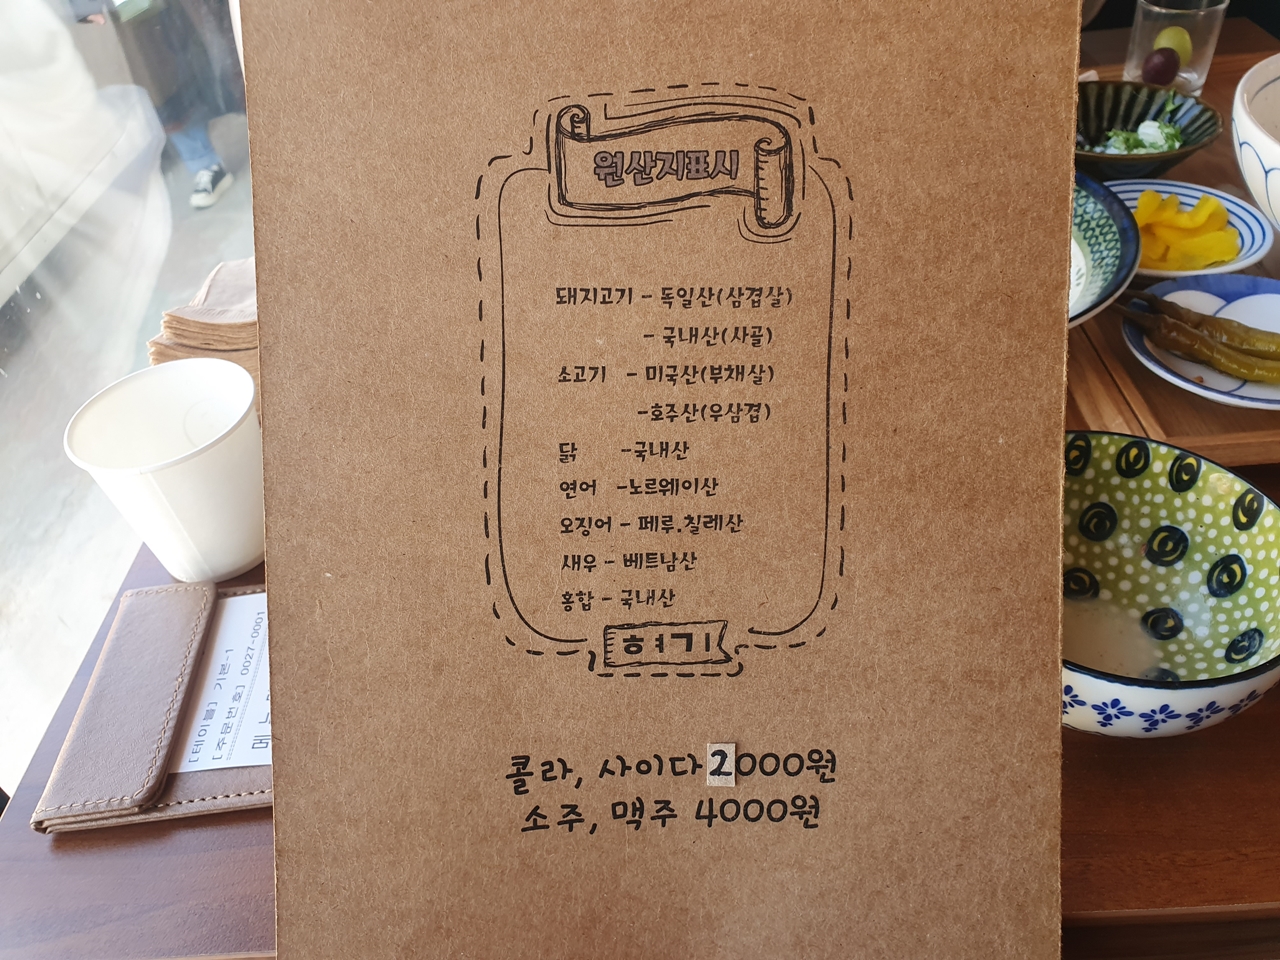 원산지표시
돼지고기 - 독일산(삼겹살)
- 국내산(사골)
소고기 - 미국산(부채살)
-호주산(우삼겹)
닭 -국내산
연어 -노르웨이산
오징어 - 페루.칠레산
새우 - 베트남산
홍합 - 국내산
혀기
콜라, 사이다 2000원
소주, 맥주 4000원
[테이블] 기본-1
[주문번호] 0027-0001
메